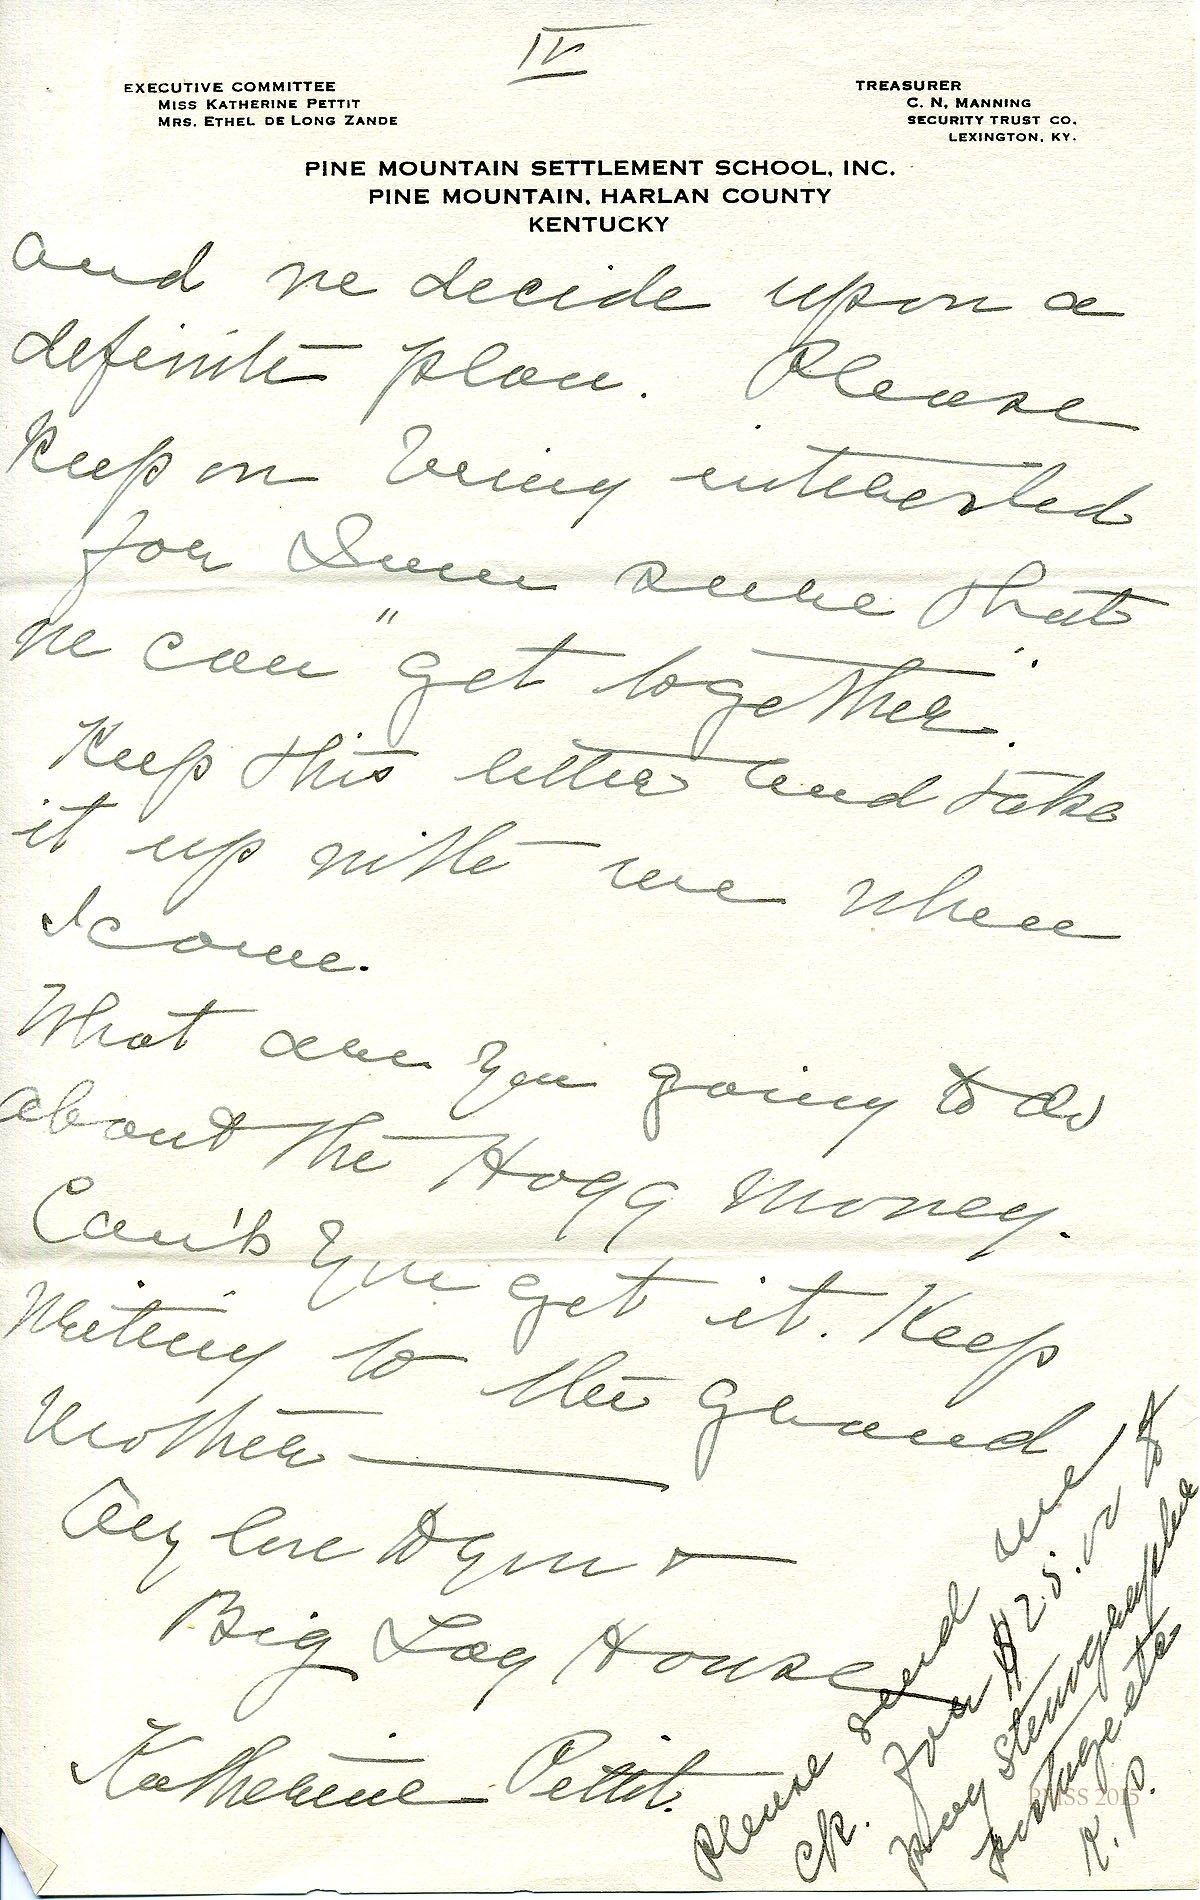 IV
EXECUTIVE COMMITTEE
MISS KATHERINE PETTIT
MRS. ETHEL DE LONG ZANDE
TREASURER
C. N. MANNING
SECURITY TRUST CO.
LEXINGTON, KY.
PINE MOUNTAIN SETTLEMENT SCHOOL, INC.
PINE MOUNTAIN, HARLAN COUNTY
KENTUCKY
and we decide upon a
definite plan. Please
keep on being interested
for I'm sure that
we can "get together".
Keep this letter and take
it up with me when
I come.
What are you going to do
about the Hogg money.
Can't you get it. Keep
writing to the grand
mother —
My love to you &
Big Log House
Katherine Pettit.
Please send me
ck. for $25.00 to
pay stenographer
postage etc
K. P.
PMSS 2015